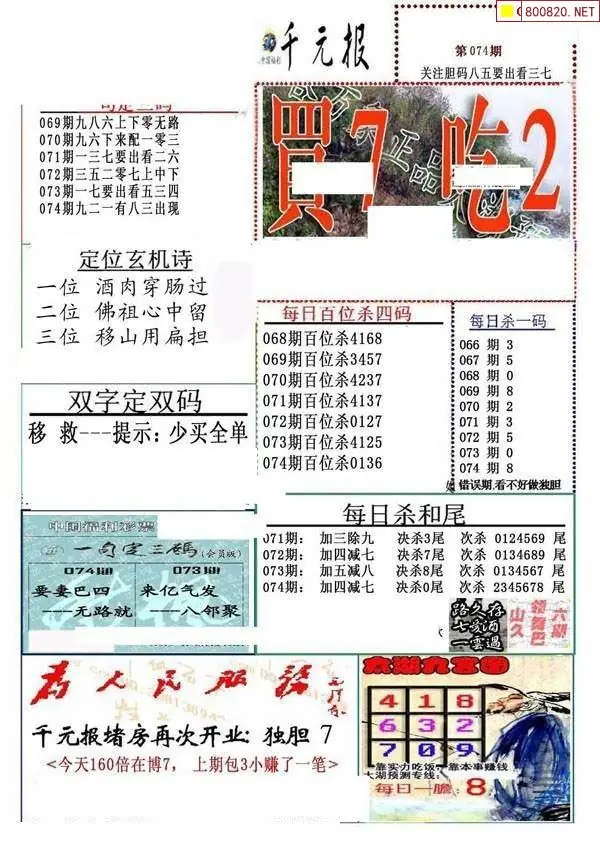 800820.NET
千元报
第074期
关注胆码八五要出看三七
買7吃2
069期九八六上下零无路
070期九六下来配一零三
071期一三七要出看二六
072期三五二零七上中下
073期一七要出看五三四
074期九二一有八三出现
定位玄机诗
一位 酒肉穿肠过
二位 佛祖心中留
三位 移山用扁担
每日百位杀四码
068期百位杀4168
069期百位杀3457
070期百位杀4237
071期百位杀4137
072期百位杀0127
073期百位杀4125
074期百位杀0136
每日杀一码
066 期 3
067 期 5
068 期 0
069 期 8
070 期 2
071 期 3
072 期 5
073 期 0
074 期 8
错误期,看不好做独胆
双字定双码
移 救---提示: 少买全单
每日杀和尾
071期: 加三除九 决杀3尾 次杀 0124569 尾
072期: 加四减七 决杀7尾 次杀 0134689 尾
073期: 加五减八 决杀8尾 次杀 0134567 尾
074期: 加四减七 决杀0尾 次杀 2345678 尾
中国福利彩票
一句定三碼(会员版)
074期 073期
要妻巴四 来亿气发
---无路就 ---八邻聚
为人民服务
千元报堵房再次开业: 独胆 7
<今天160倍在博7, 上期包3小赚了一笔>
太湖九宫图
4 1 8
6 3 2
7 0 9
靠实力吃饭,靠本事赚钱
太湖预测专线:
每日一胆: 8